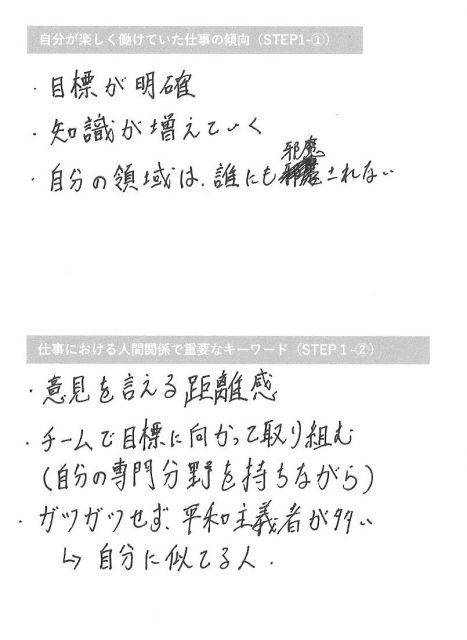 自分が楽しく働けていた仕事の傾向（STEP1-①）
・目標が明確
・知識が増えていく
・自分の領域は、誰にも邪魔されない
仕事における人間関係で重要なキーワード（STEP１-②）
・意見を言える距離感
・チームで目標に向かって取り組む
(自分の専門分野を持ちながら)
・ガツガツせず、平和主義者が多い
↳ 自分に似てる人.